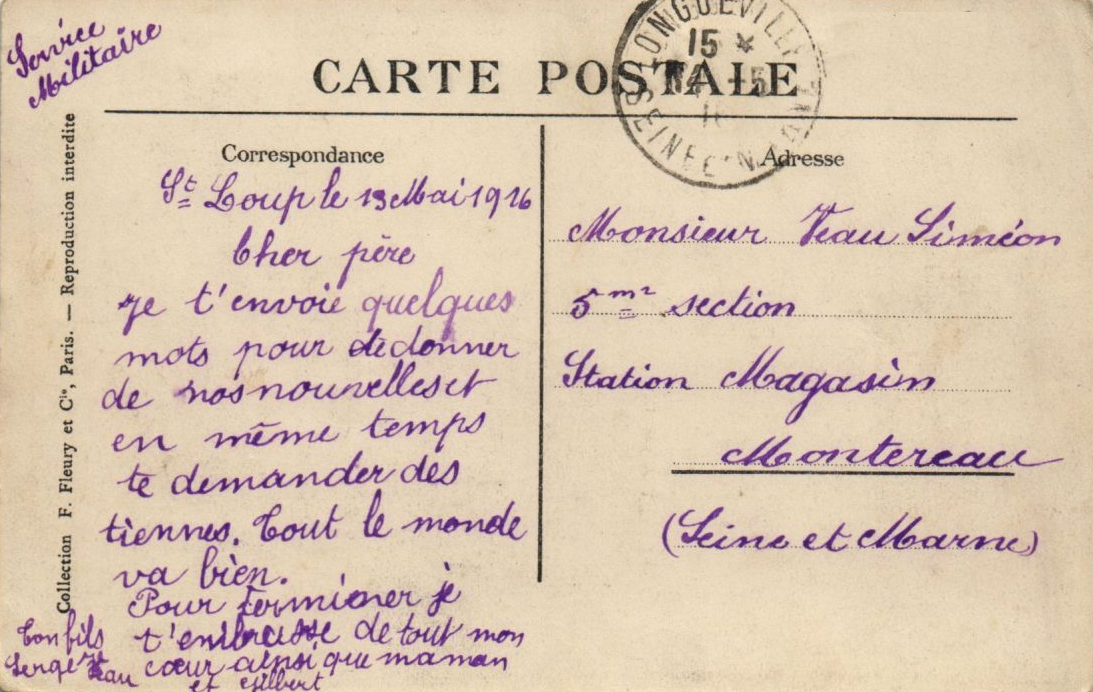 Service
Militaire
CARTE POSTALE
LONGUEVILLE
15 *
14 -5
16
SEINE ET MARNE
Collection F. Fleury et Cie, Paris. — Reproduction interdite
Correspondance
St Loup le 13 Mai 1916
Cher père
Je t'envoie quelques
mots pour de donner
de nos nouvelles et
en même temps
te demander des
tiennes. Tout le monde
va bien.
Pour terminer je
t'embrasse de tout mon
cœur ainsi que maman
et Gilbert
Ton fils
Serge Veau
Adresse
Monsieur Veau Siméon
5me section
Station Magasin
Montereau
(Seine et Marne)